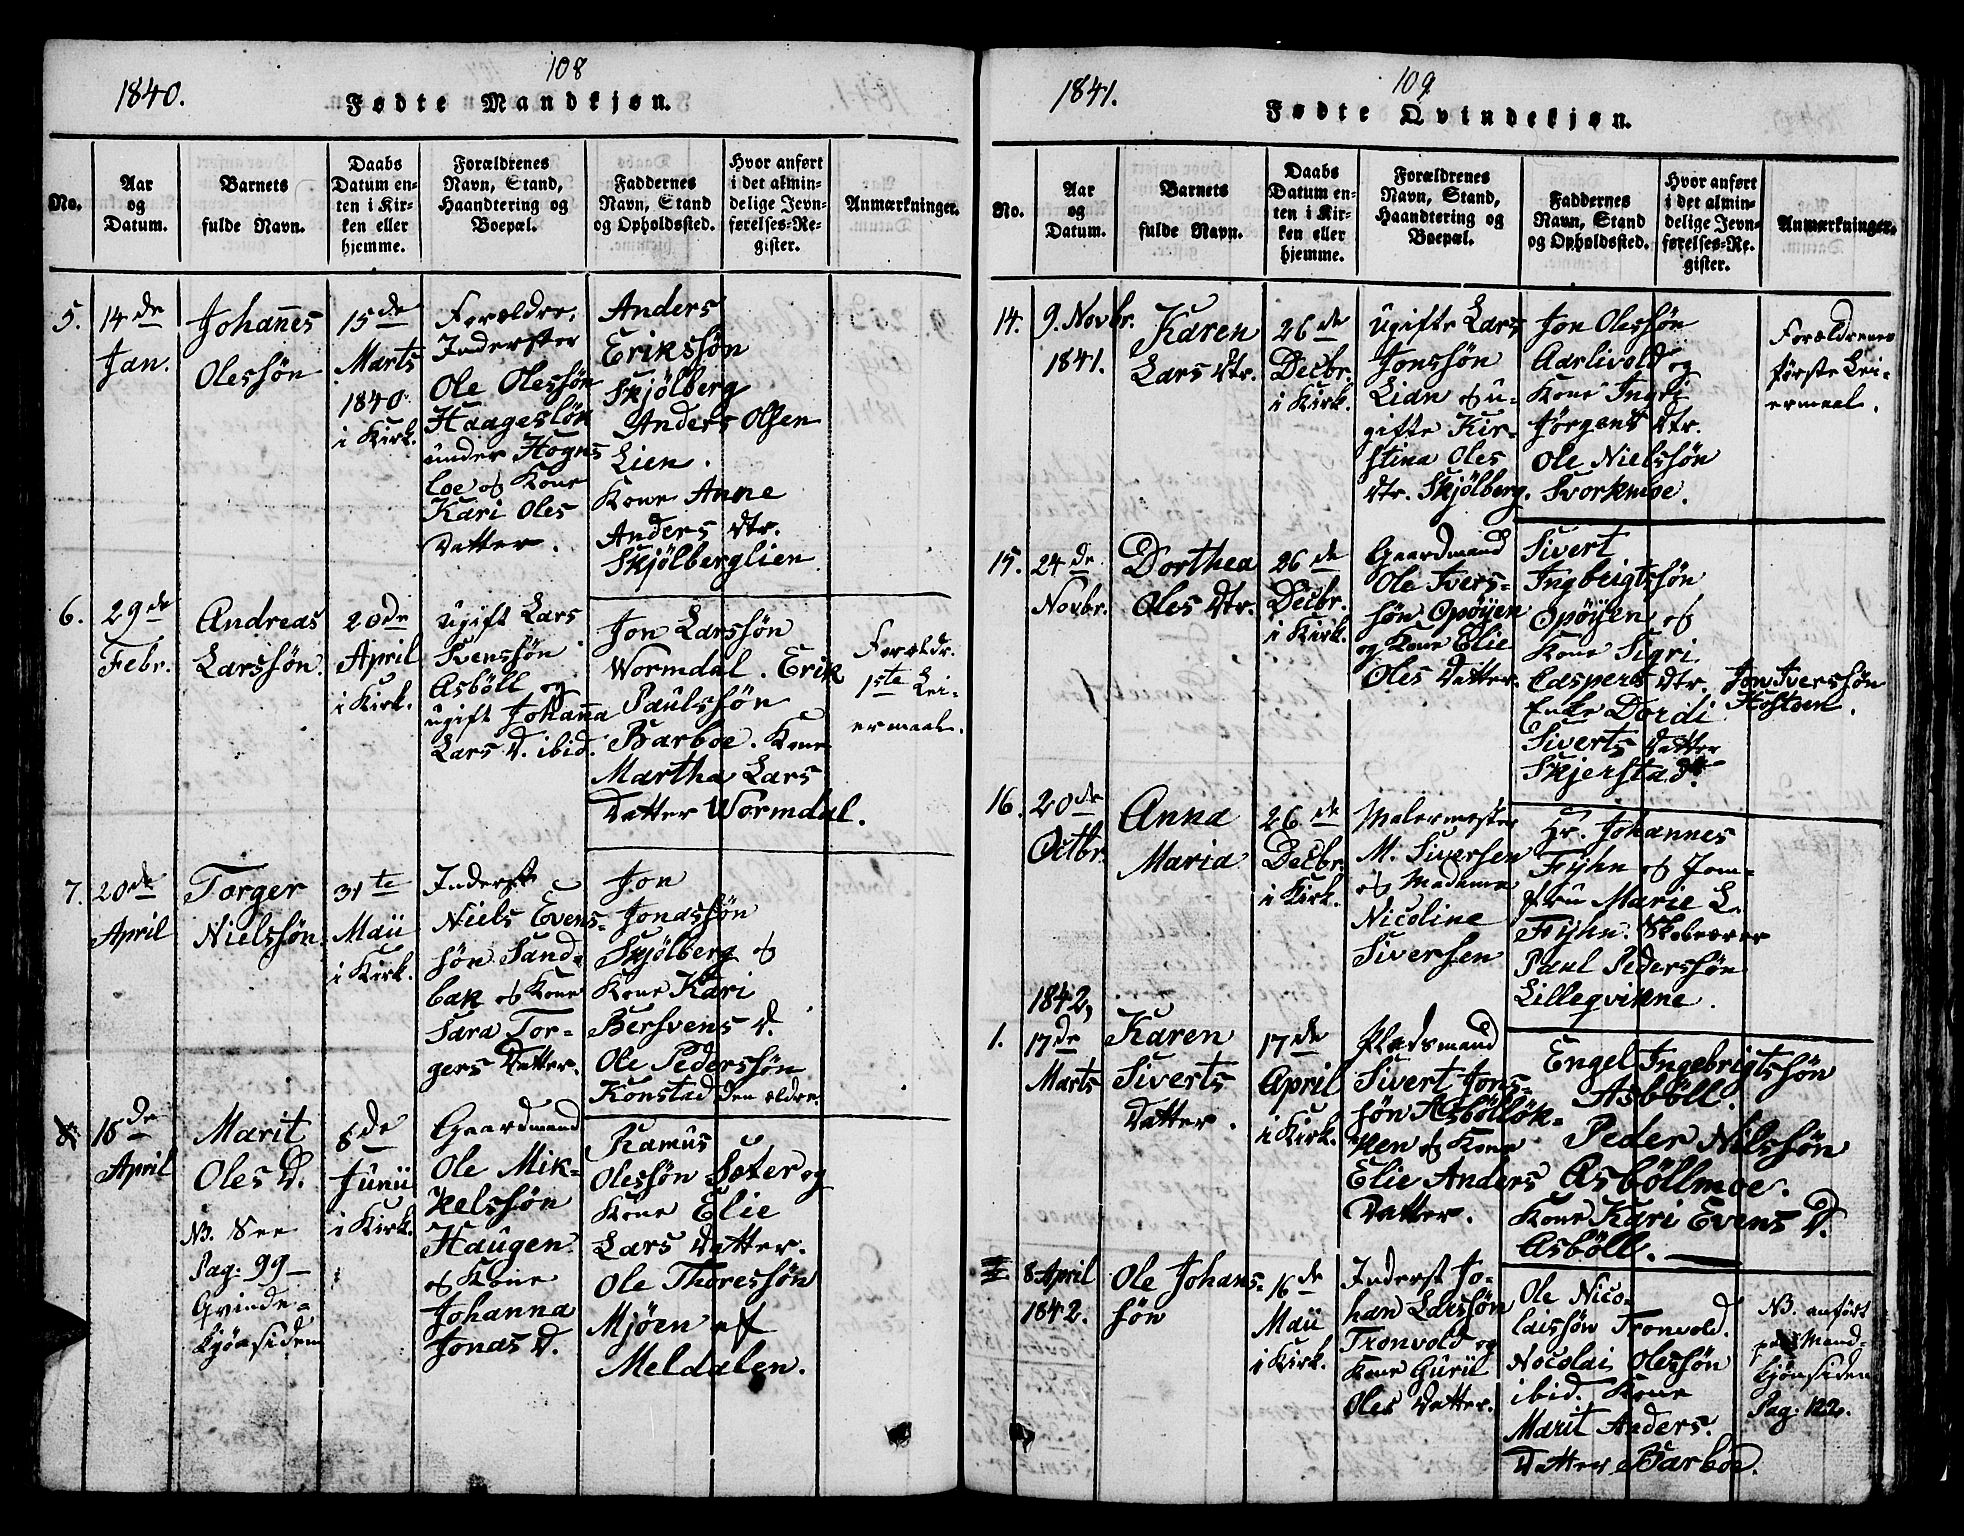 108
1840.
Fødte Mandkjøn.
No.
Aar
og
Datum.
Barnets
fulde Navn.
Daabs
Datum en-
ten i Kir-
ken eller
hjemme.
Forældrenes
Navn, Stand,
Haandtering og
Boepæl.
Faddernes
Navn, Stand
og Opholdssted.
Hvor anført
i det almin-
delige Jevn-
førelses-Re-
gister.
Anmærkninger.
5.
14de
Jan.
Johannes
Olessøn
15de
Marts
1840
i Kirk.
Forældre,
Inderster
Ole Olessøn
Haagesløk
under Hogns
loe og Kone
Kari Oles
Datter.
Anders
Erikssøn
Skjølberg
Anders Olsen
Lien.
Kone Anne
Anders Dtr.
Skjølberglien.
6.
29de
Febr.
Andreas
Larssøn.
20de
April
i Kirk.
ugift Lars
Svenssøn
Asbøll og
ugift Johanna
Lars D. ibid.
Jon Larssøn
Wormdal. Erik
Paulssøn
Barboe. Kone
Martha Lars
Datter Wormdal.
Forældr.
1ste Lei-
ermaal.
7.
20de
April
Torger
Nielssøn.
31te
Maii
i Kirk.
Inderst
Niels Evens-
søn Sand-
bak og Kone
Sara Tor-
gers Datter.
Jon
Jonassøn
Skjølberg og
Kone Kari
Bersvens D.
Ole Pederssøn
Konstad den ældre.
8.
18de
April
Marit
Oles D.
NB. See
Pag. 99
Qvinde-
kjønsiden
8de
Junii
i Kirk.
Gaardmand
Ole Mik-
kelssøn
Haugen
og Kone
Johanna
Jonas D.
Ramus
Olessøn Sæter og
Kone Elie
Lars Datter.
Ole Thoressøn
Mjøen af
Meldalen.
109
1841.
Fødte Qvindekjøn.
No.
Aar
og
Datum.
Barnets
fulde Navn.
Daabs
Datum en-
ten i Kir-
ken eller
hjemme.
Forældrenes
Navn, Stand,
Haandtering og
Boepæl.
Faddernes
Navn, Stand
og Opholdssted.
Hvor anført
i det almin-
delige Jevn-
førelses-Re-
gister.
Anmærkninger.
14.
9. Novbr.
1841.
Karen
Lars Dtr.
26de
Decbr.
i Kirk.
ugifte Lars
Jonssøn
Lian og u-
gifte Kir-
stina Oles
Dtr. Skjølberg.
Jon Olessøn
Aarlivold og
Kone Ingri
Jørgens Dtr.
Ole Nielssøn
Svorkmoe.
Forældrenes
første Lei-
ermaal.
15.
24de
Novbr.
Dorthea
Oles Dtr.
26de
Decbr.
i Kirk.
Gaardmand
Ole Ivers-
søn Opøyen
og Kone Elie
Oles Datter.
Sivert
Ingbrigtssøn
Opøyen og
Kone Sigri
Caspers Dtr.
Enke Dordi
Siverts Datter
Skjerstad.
Jon Iverssøn
Hostoen.
16.
20de
Octbr.
Anna
Maria
26de
Decbr.
i Kirk.
Malermester
M. Siversen
og Madame
Nicoline
Siversen
Hr. Johannes
Fyhn og Jom-
fru Marie L.
Fyhn. Skolelærer
Paul Pederssøn
Lilleqvikne.
1842,
1.
17de
Marts
Karen
Siverts
Datter.
17de
April
i Kirk.
Pladsmand
Sivert Jons-
søn Asbølløk-
ken og Kone
Elie Anders
Datter.
Engel Ingebrigtssøn
Asbøll.
Peder Nilssøn
Asbøllmoe.
Kone Kari Evens D.
Asbøll.
8 April
1842.
Ole Johans-
søn
16de
Maii
i Kirk.
Inderst Jo-
han Larssøn
Tronvold og
Kone Gurii
Oles Datter.
Ole Nico-
laissøn Tronvold.
Nocolai Olessøn
ibid. Kone
Marit Anders.
Datter Barboe.
NB. anført
paa Mand-
kjønsiden
Pag. 122.